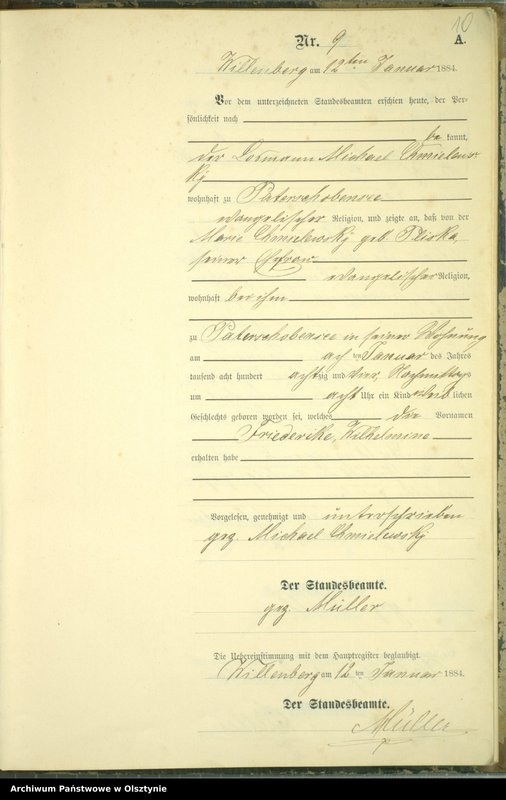 10
Nr. 9 A.
Willenberg am 12ten Januar 1884.
Vor dem unterzeichneten Standesbeamten erschien heute, der Per-
sönlichkeit nach
be kannt,
der Losmann Michael Chmielews
kj
wohnhaft zu Paterschobensee
evangelischer Religion, und zeigte an, daß von der
Marie Chmielewskj geb. Pliska,
seiner Ehefrau
evangelischer Religion,
wohnhaft bei ihm
zu Paterschobensee in seiner Wohnung
am acht ten Januar des Jahres
tausend acht hundert achtzig und vier, Nachmittags
um acht Uhr ein Kind weib lichen
Geschlechts geboren worden sei, welches die Vornamen
Friederike, Wilhelmine
erhalten habe
Vorgelesen, genehmigt und unterschrieben
gez. Michael Chmielewskj
Der Standesbeamte.
gez. Müller
Die Uebereinstimmung mit dem Hauptregister beglaubigt.
Willenberg am 12 ten Januar 1884.
Der Standesbeamte.
Müller
Archiwum Państwowe w Olsztynie